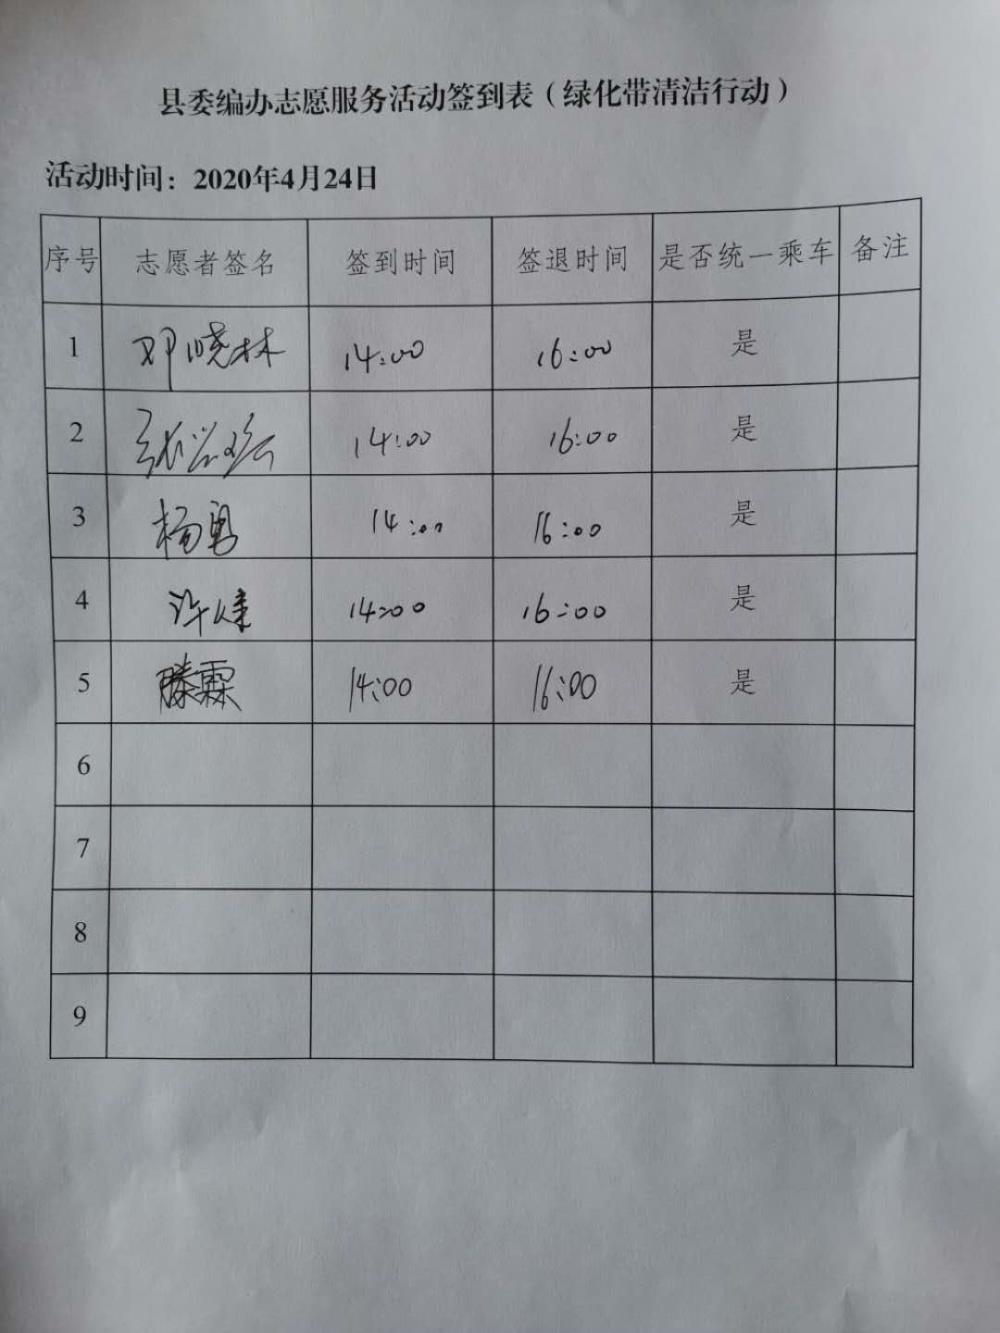 县委编办志愿服务活动签到表（绿化带清洁行动）
活动时间：2020年4月24日
序号 志愿者签名 签到时间 签退时间 是否统一乘车 备注
1 邓晓林 14:00 16:00 是
2 张 14:00 16:00 是
3 杨勇 14:00 16:00 是
4 许佳 14:00 16:00 是
5 滕霖 14:00 16:00 是
6
7
8
9